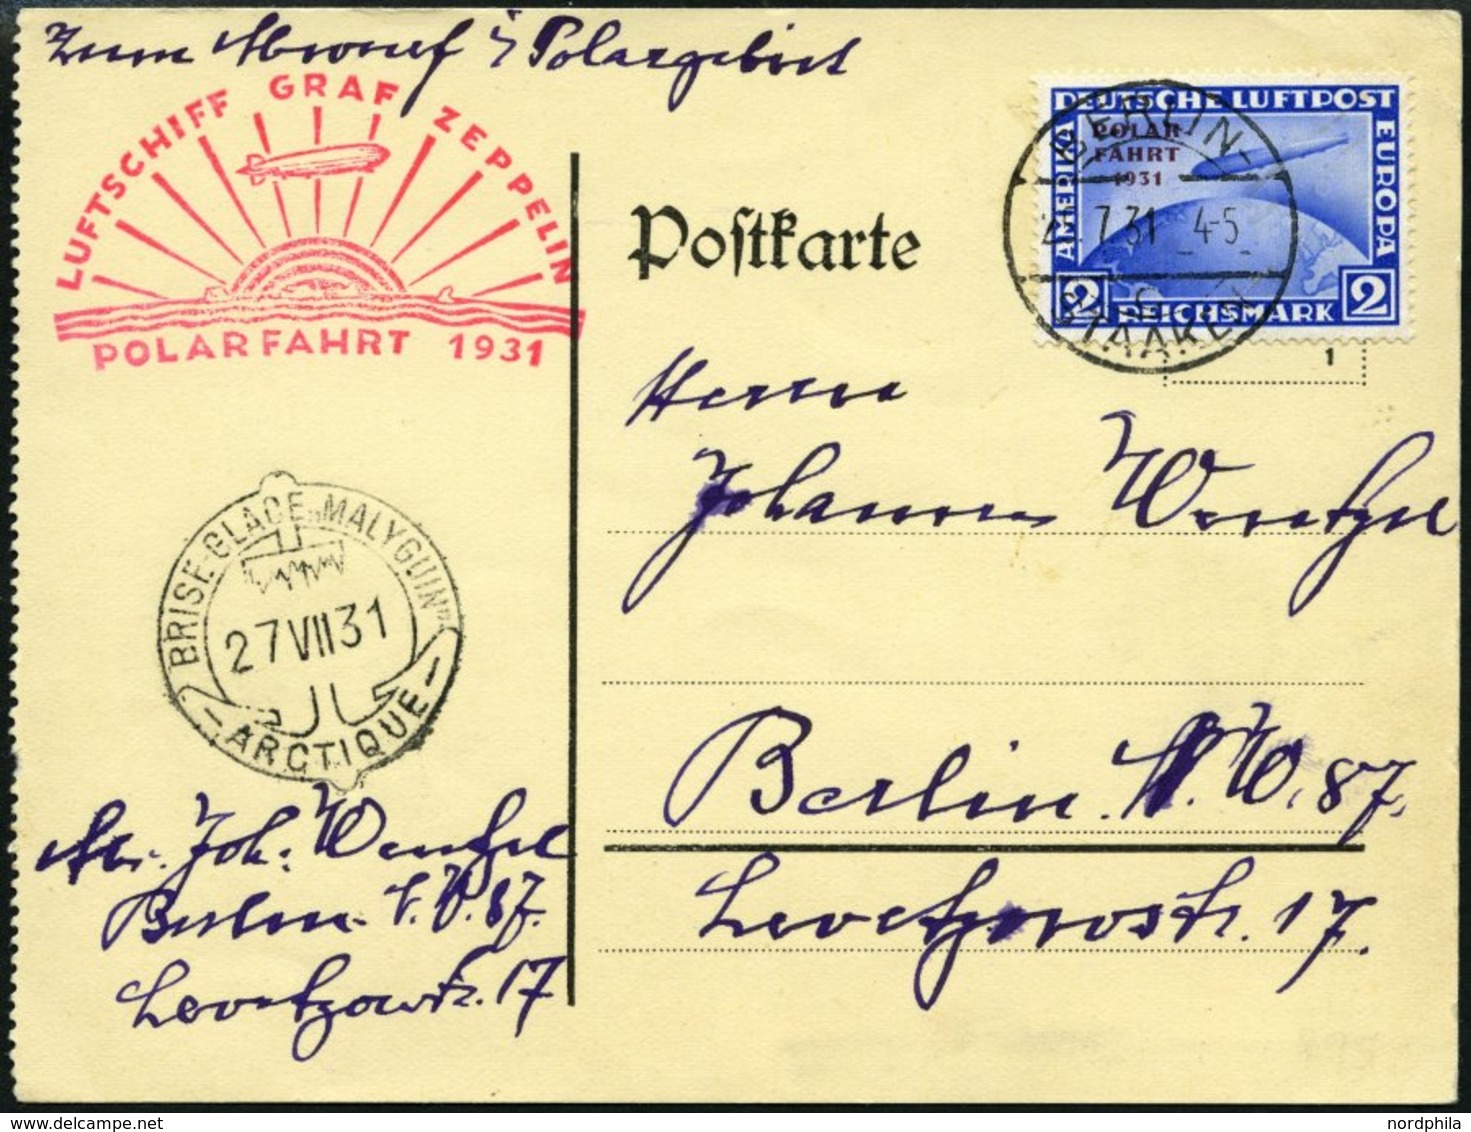 Zum Abwurf i. Polargebiet
LUFTSCHIFF GRAF ZEPPELIN
POLARFAHRT 1931
DEUTSCHE LUFTPOST
AMERIKA
EUROPA
POLAR-
FAHRT
1931
2 REICHSMARK 2
BERLIN-
7.31 4-5
STAAKEN
1
Postkarte
Herrn
Johannes Wentzel
Berlin N.W. 87.
Levetzowstr. 17.
BRISE-GLACE „MALYGUIN"
27 VII 31
— ARCTIQUE —
Abs. Joh. Wentzel
Berlin N.W. 87.
Levetzowstr. 17
nordphila